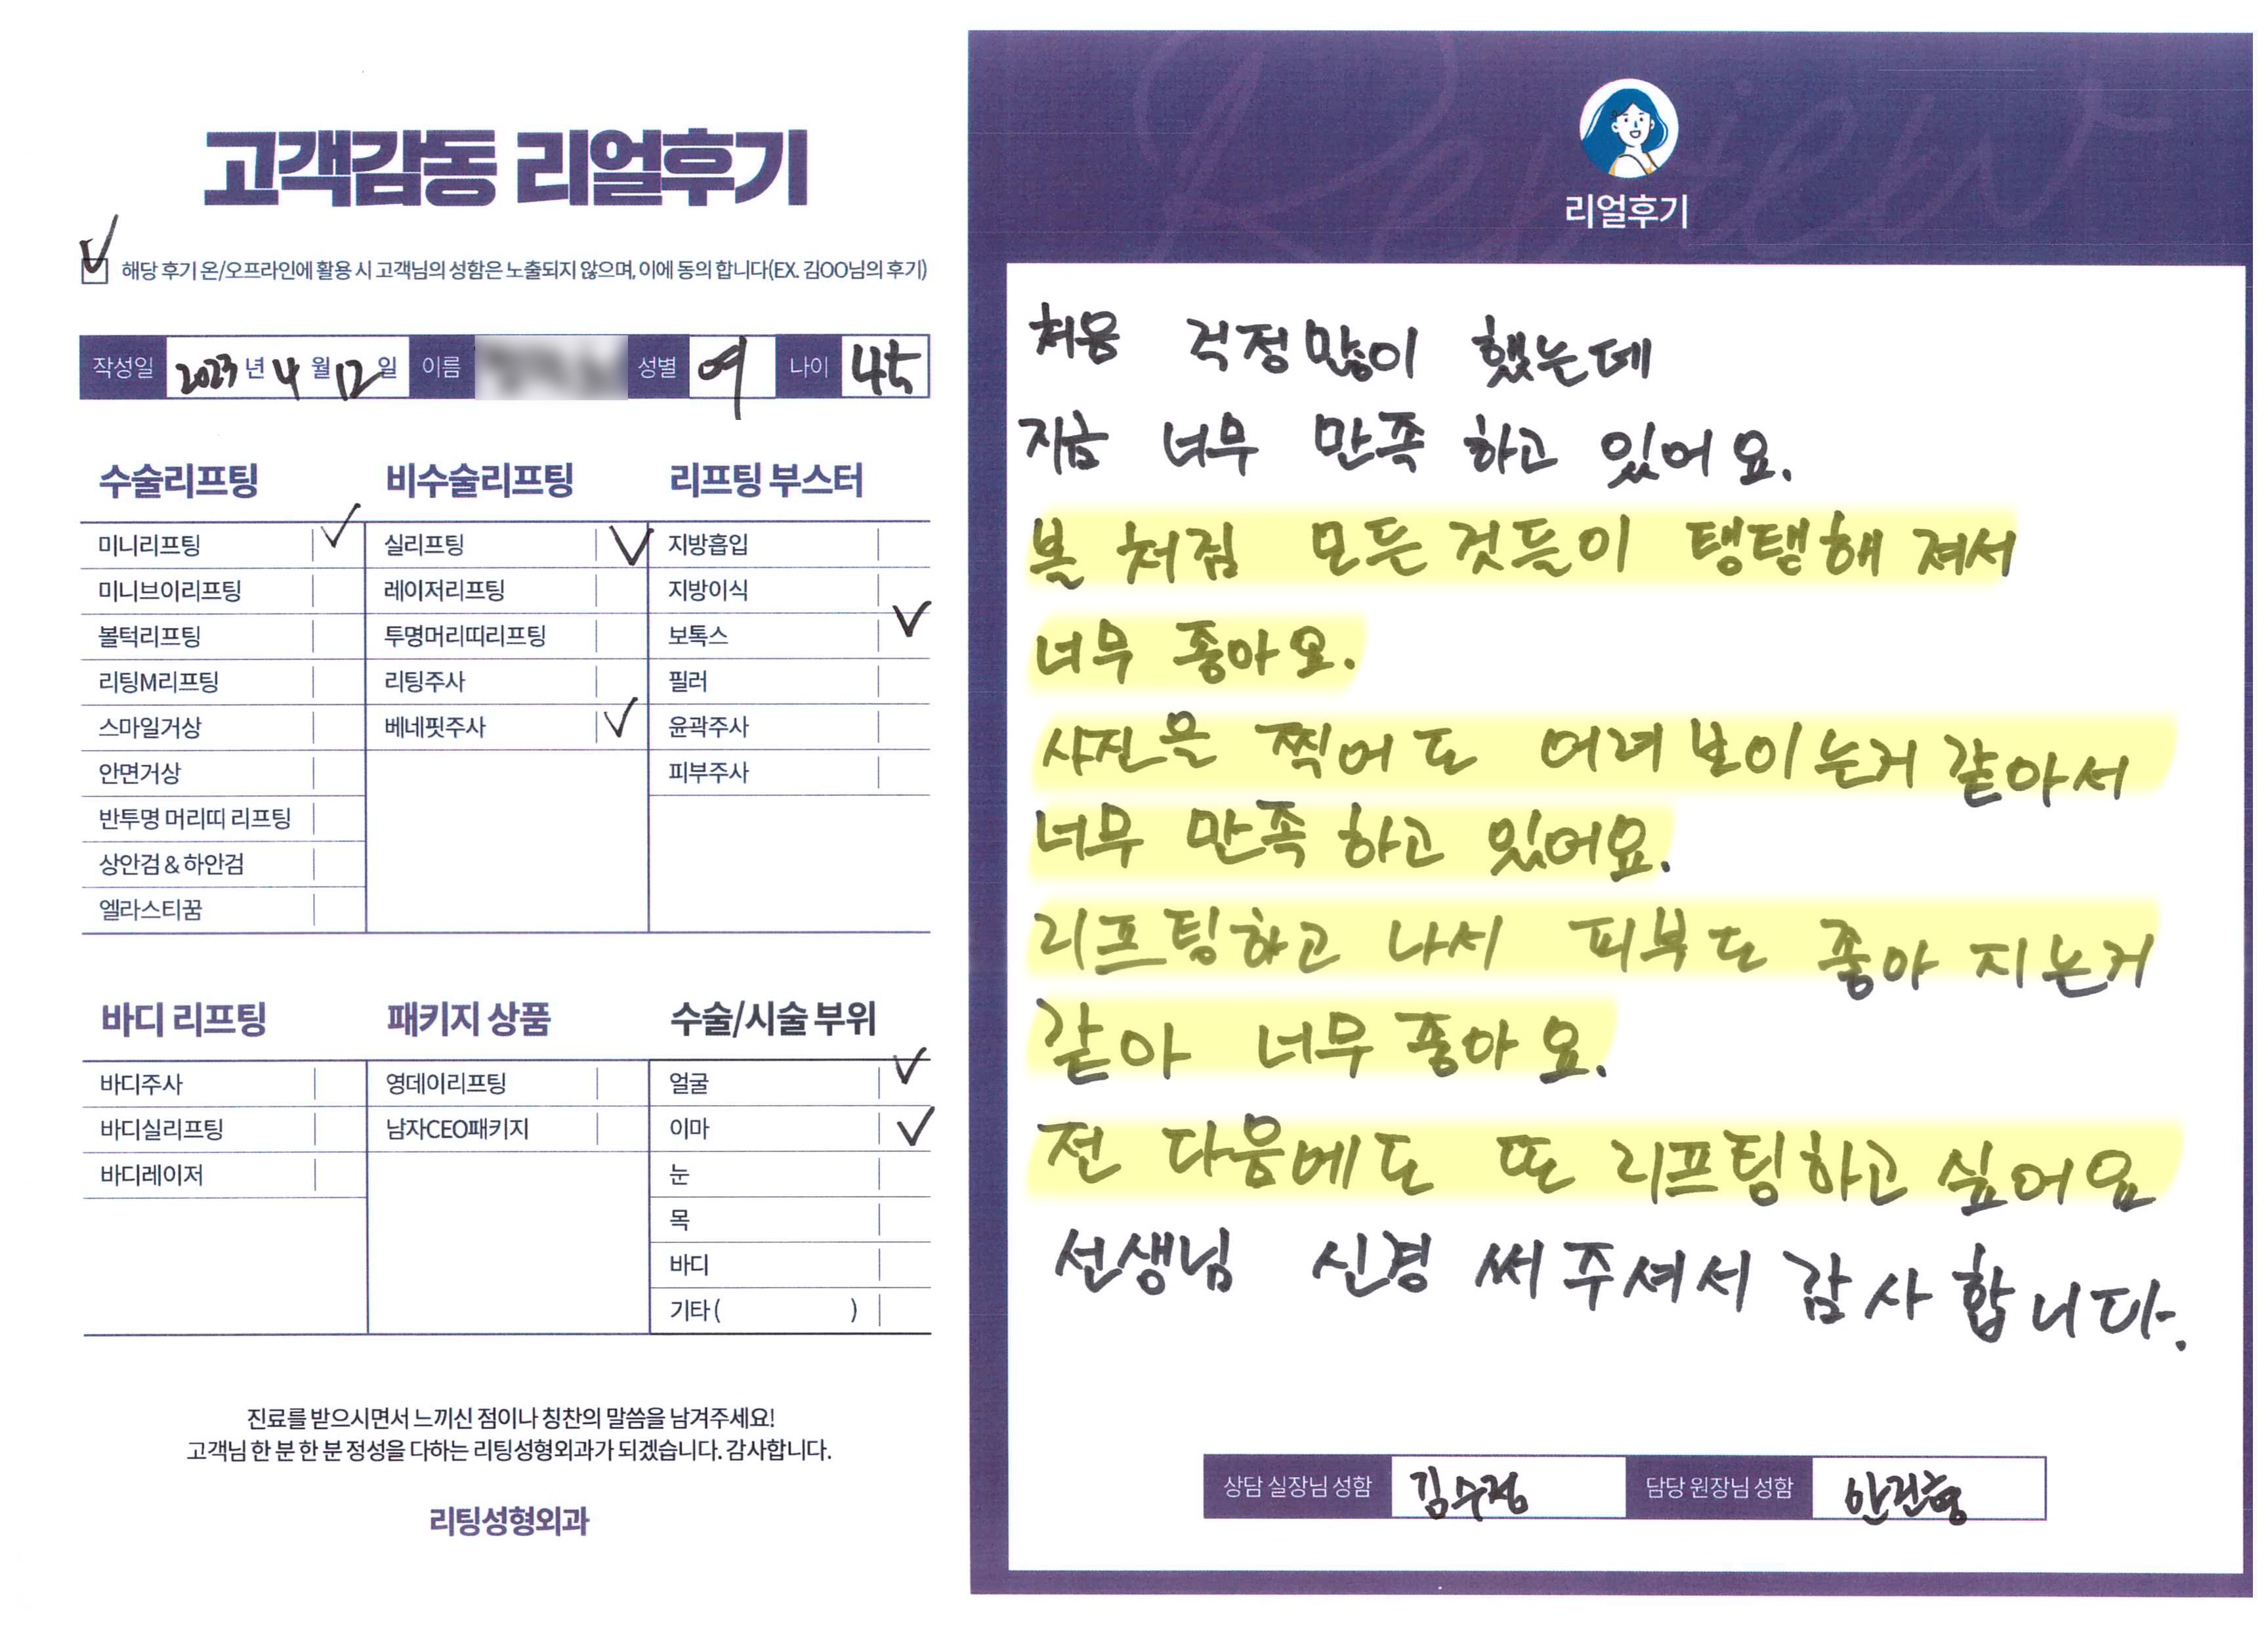 고객감동 리얼후기
해당 후기 온/오프라인에 활용 시 고객님의 성함은 노출되지 않으며, 이에 동의 합니다(EX. 김OO님의 후기)
작성일 2023년 4월 12일 이름 성별 여 나이 45
수술리프팅
미니리프팅
미니브이리프팅
볼턱리프팅
리팅M리프팅
스마일거상
안면거상
반투명 머리띠 리프팅
상안검 & 하안검
엘라스티꿈
비수술리프팅
실리프팅
레이저리프팅
투명머리띠리프팅
리팅주사
베네핏주사
리프팅 부스터
지방흡입
지방이식
보톡스
필러
윤곽주사
피부주사
바디 리프팅
바디주사
바디실리프팅
바디레이저
패키지 상품
영데이리프팅
남자CEO패키지
수술/시술 부위
얼굴
이마
눈
목
바디
기타 ( )
진료를 받으시면서 느끼신 점이나 칭찬의 말씀을 남겨주세요!
고객님 한 분 한 분 정성을 다하는 리팅성형외과가 되겠습니다. 감사합니다.
리팅성형외과
Review
리얼후기
처음 걱정많이 했는데
지금 너무 만족 하고 있어요.
볼 처짐 모든 것들이 탱탱해 져서
너무 좋아요.
사진을 찍어도 어려 보이는거 같아서
너무 만족하고 있어요.
리프팅하고 나서 피부도 좋아 지는거
같아 너무 좋아요.
전 다음에도 또 리프팅하고 싶어요
선생님 신경 써주셔서 감사합니다.
상담 실장님 성함 김수정 담당 원장님 성함 안건형